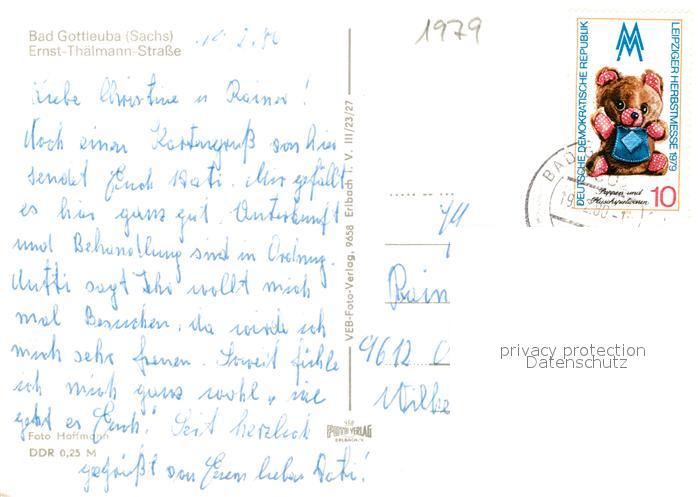 Bad Gottleuba (Sachs)
Ernst-Thälmann-Straße
1979
Liebe Christine u Rainer!
Noch einen Kartengruß von hier
sendet Euch Vati. Mir gefällt
es hier ganz gut. Unterkunft
und Behandlung sind in Ordnung.
Mutti sagt Ihr wollt mich
mal Besuchen, da würde ich
mich sehr freuen. Soweit fühle
ich mich ganz wohl, wie
geht es Euch! Seit herzlich
gegrüßt von Euern lieben Vati!
Foto Hoffmann
DDR 0,25 M
VEB-Foto-Verlag, 9658 Erlbach I. V. III/23/27
VERLAG
ERLBACH/V.
DEUTSCHE DEMOKRATISCHE REPUBLIK
LEIPZIGER HERBSTMESSE 1979
Puppen und
10
BAD
Rain
9612
Wilhe
privacy protection
Datenschutz